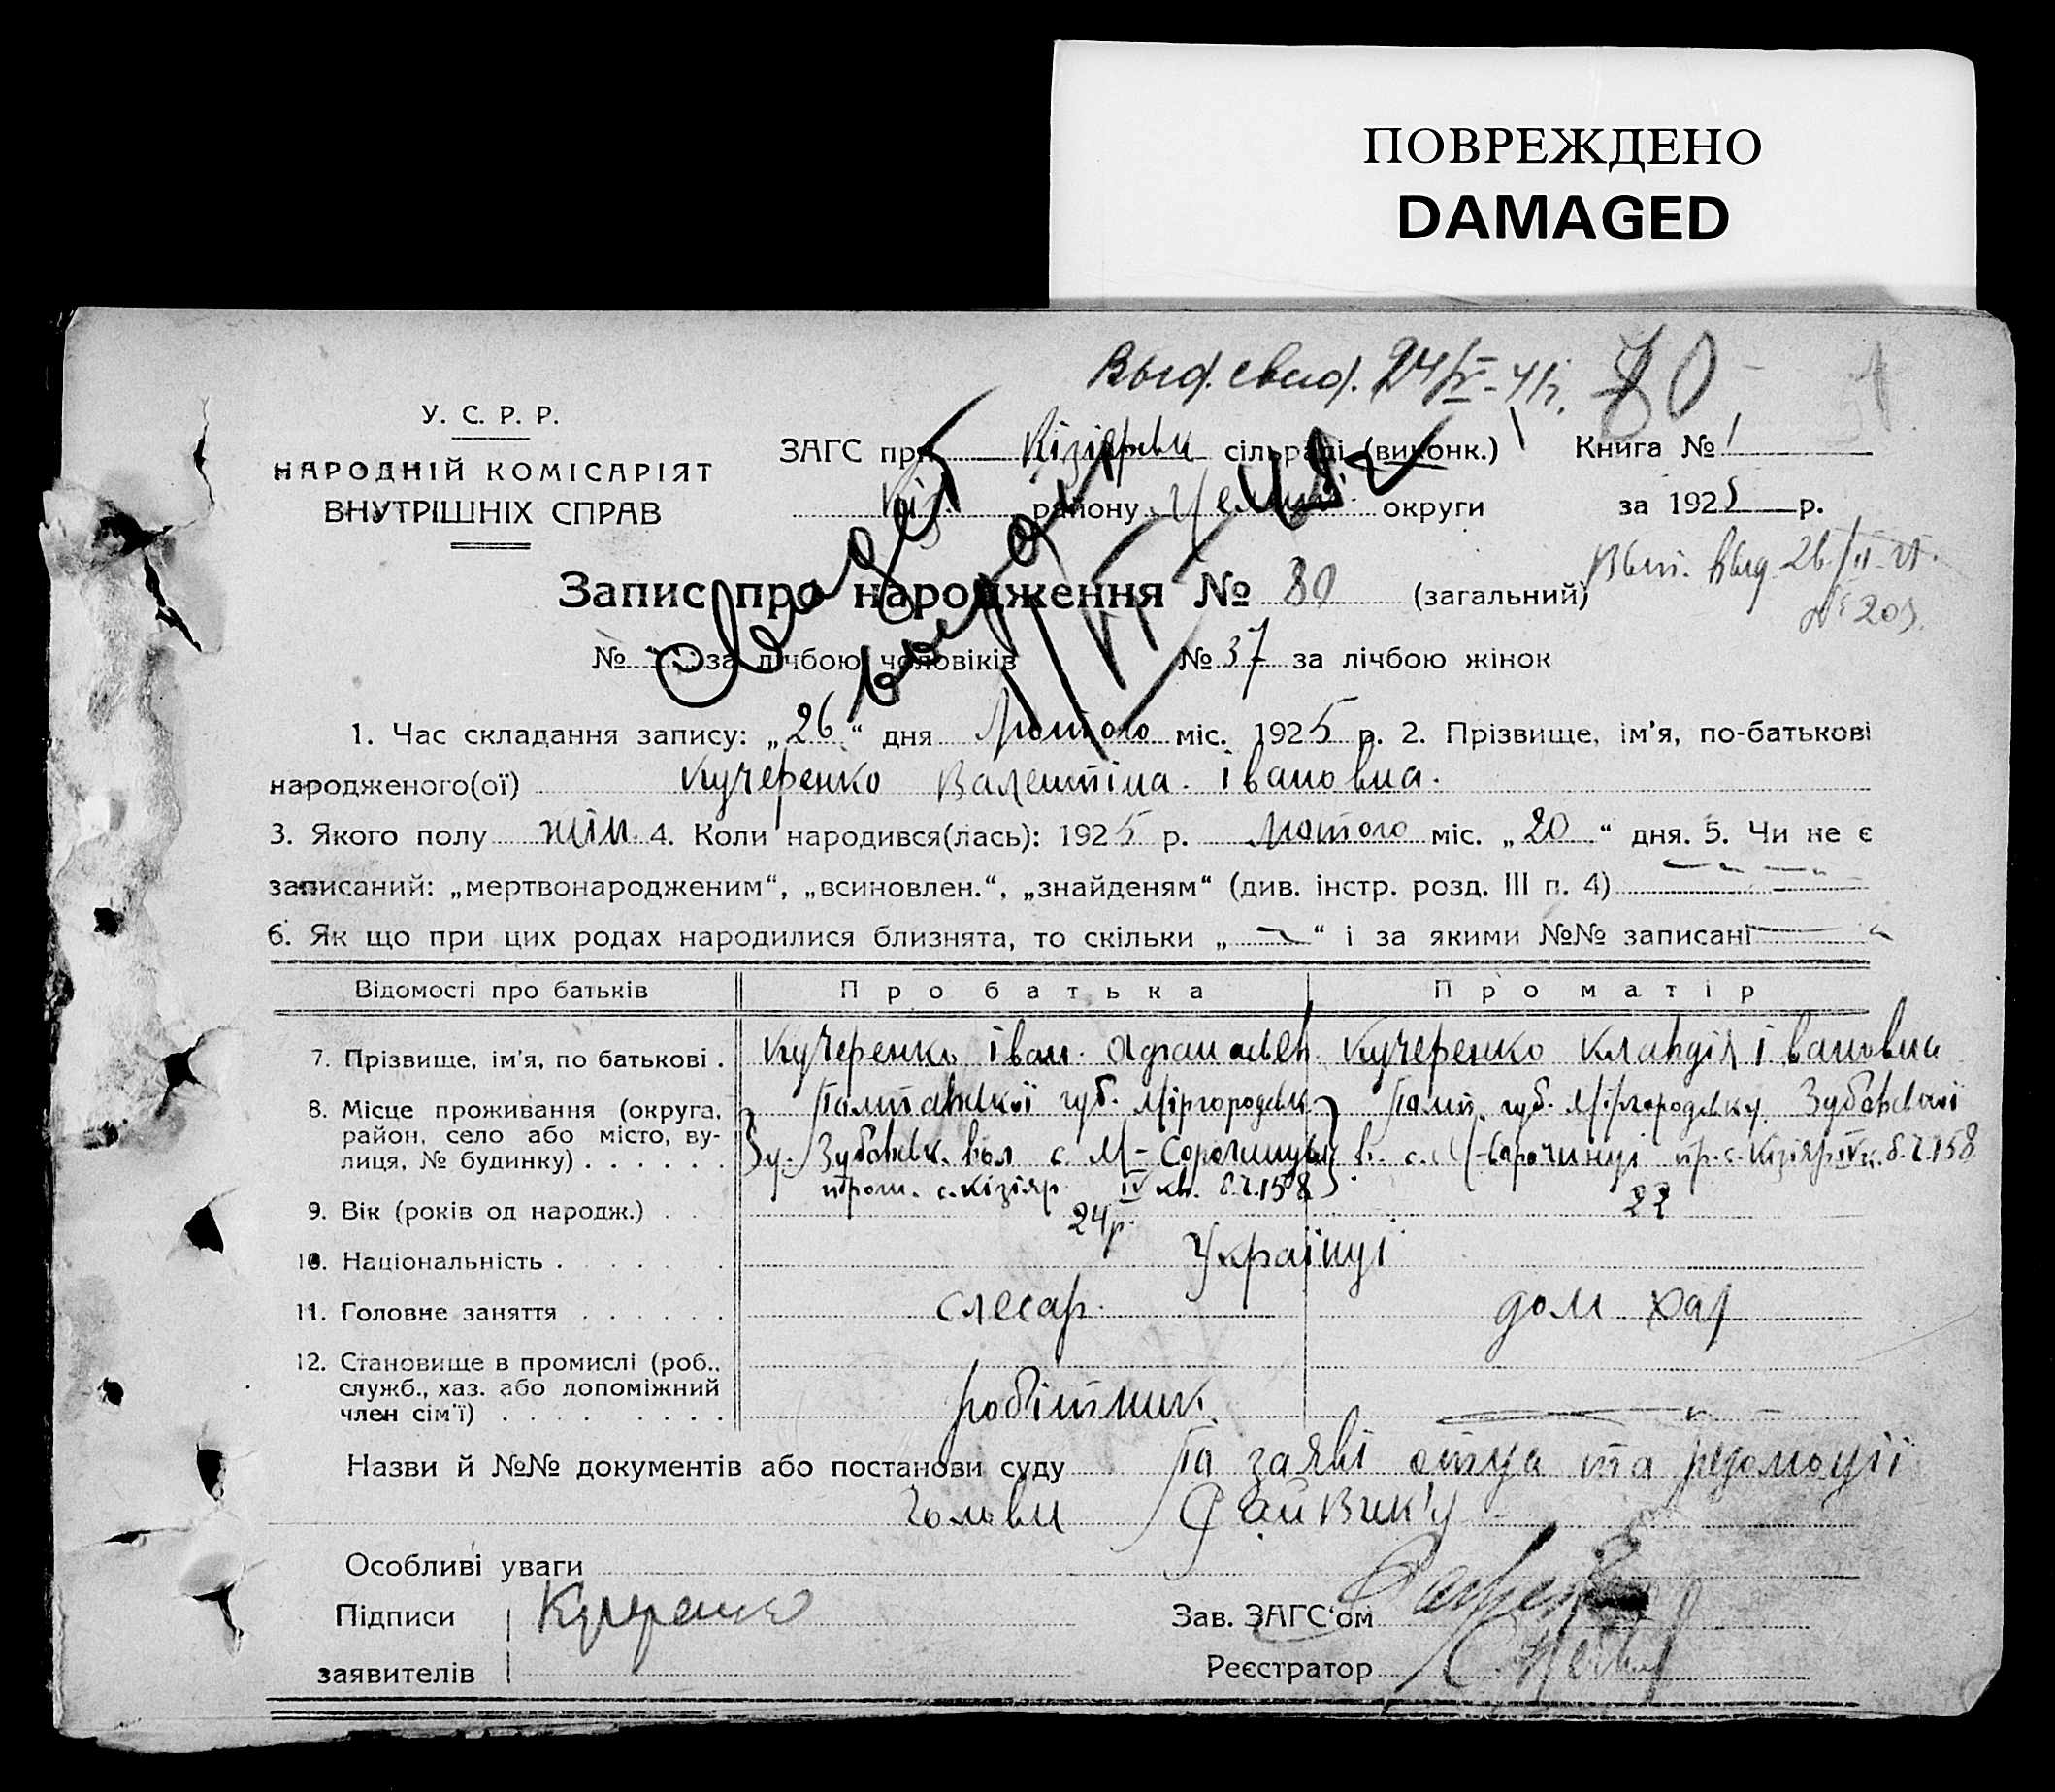 ПОВРЕЖДЕНО
DAMAGED
Выд. свид. 24/IV-41г. 80
У. С. Р. Р.
НАРОДНІЙ КОМІСАРІЯТ
ВНУТРІШНІХ СПРАВ
ЗАГС при Кізіярськ сільраді (виконк.) Книга № 1
району округи за 1925 р.
Запис про народження № 80 (загальний)
№ за лічбою чоловіків № 37 за лічбою жінок
1. Час складання запису: „26“ дня Лютого міс. 1925 р. 2. Прізвище, ім'я, по-батькові
народженого(ої) Кучеренко Валентіна Івановна.
3. Якого полу жін. 4. Коли народився(лась): 1925 р. Лютого міс. „20“ дня. 5. Чи не є
записаний: „мертвонародженим“, „всиновлен.“, „знайденям“ (див. інстр. розд. III п. 4)
6. Як що при цих родах народилися близнята, то скільки „ “ і за якими №№ записані
Відомості про батьків Про батька Про матір
7. Прізвище, ім'я, по батькові . Кучеренко Іван Афанасьев. Кучеренко Клавдія Івановна
8. Місце проживання (округа, район, село або місто, вулиця, № будинку) Полтавської губ. Міргородськ. Полт. губ. Міргородську Зубовської
Зубовськ. вол с. М-Сорочинці в. с. М-Сорочинці пр. с. Кізіяр IV к. б. ч. 158
прож. с. Кізіяр IV кв. б. ч. 158
9. Вік (років од народж.) . 24 р. 22
10. Національність . Українці
11. Головне заняття слесар. дом хаз
12. Становище в промислі (роб., служб., хаз. або допоміжний член сім'ї) робітник.
Назви й №№ документів або постанови суду По заяві отця та резолюції
голови Райвик'у
Особливі уваги
Підписи Кучеренко Зав. ЗАГС'ом
заявителів Реєстратор